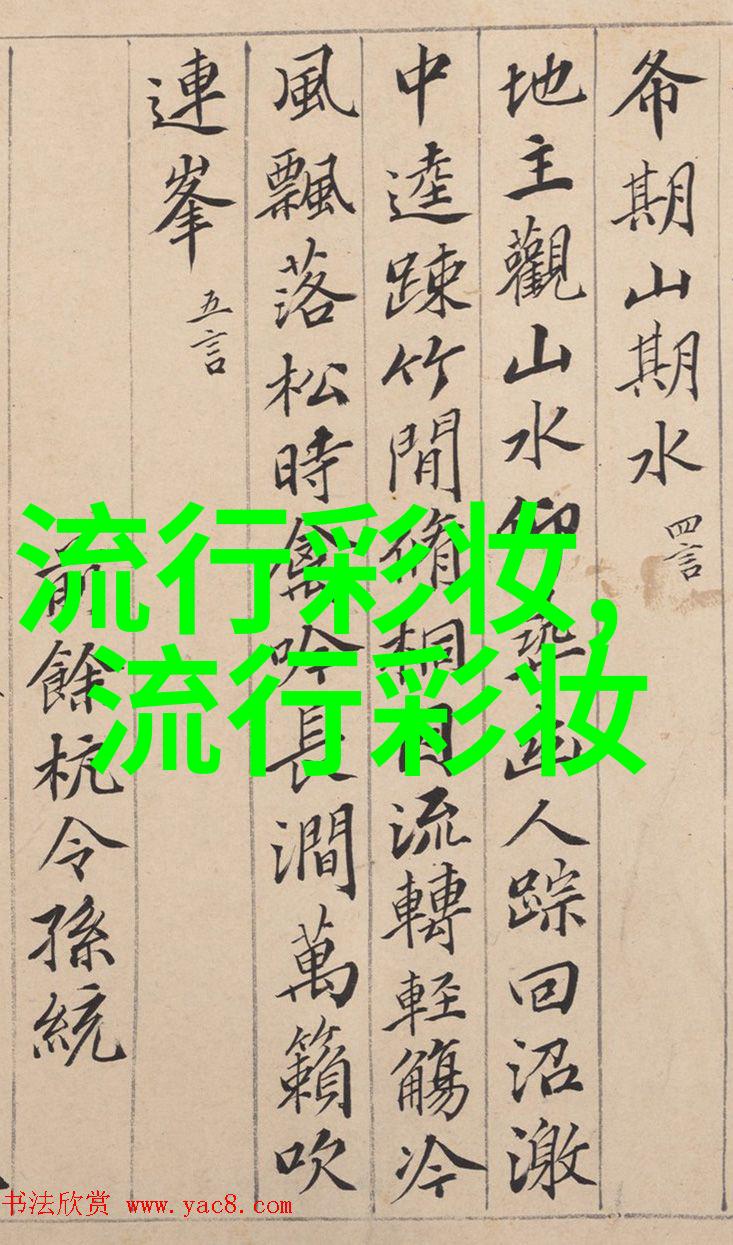 希期山期水 四言
地主觀山水仰幽人踪回沼激
中逵踈竹間脩桐流轉輕觴冷
風飄落松時禽吟長澗萬籟吹
連峯 五言
前餘杭令孫統
流行彩妆,
流行彩妆
书法欣赏 www.yac8.com